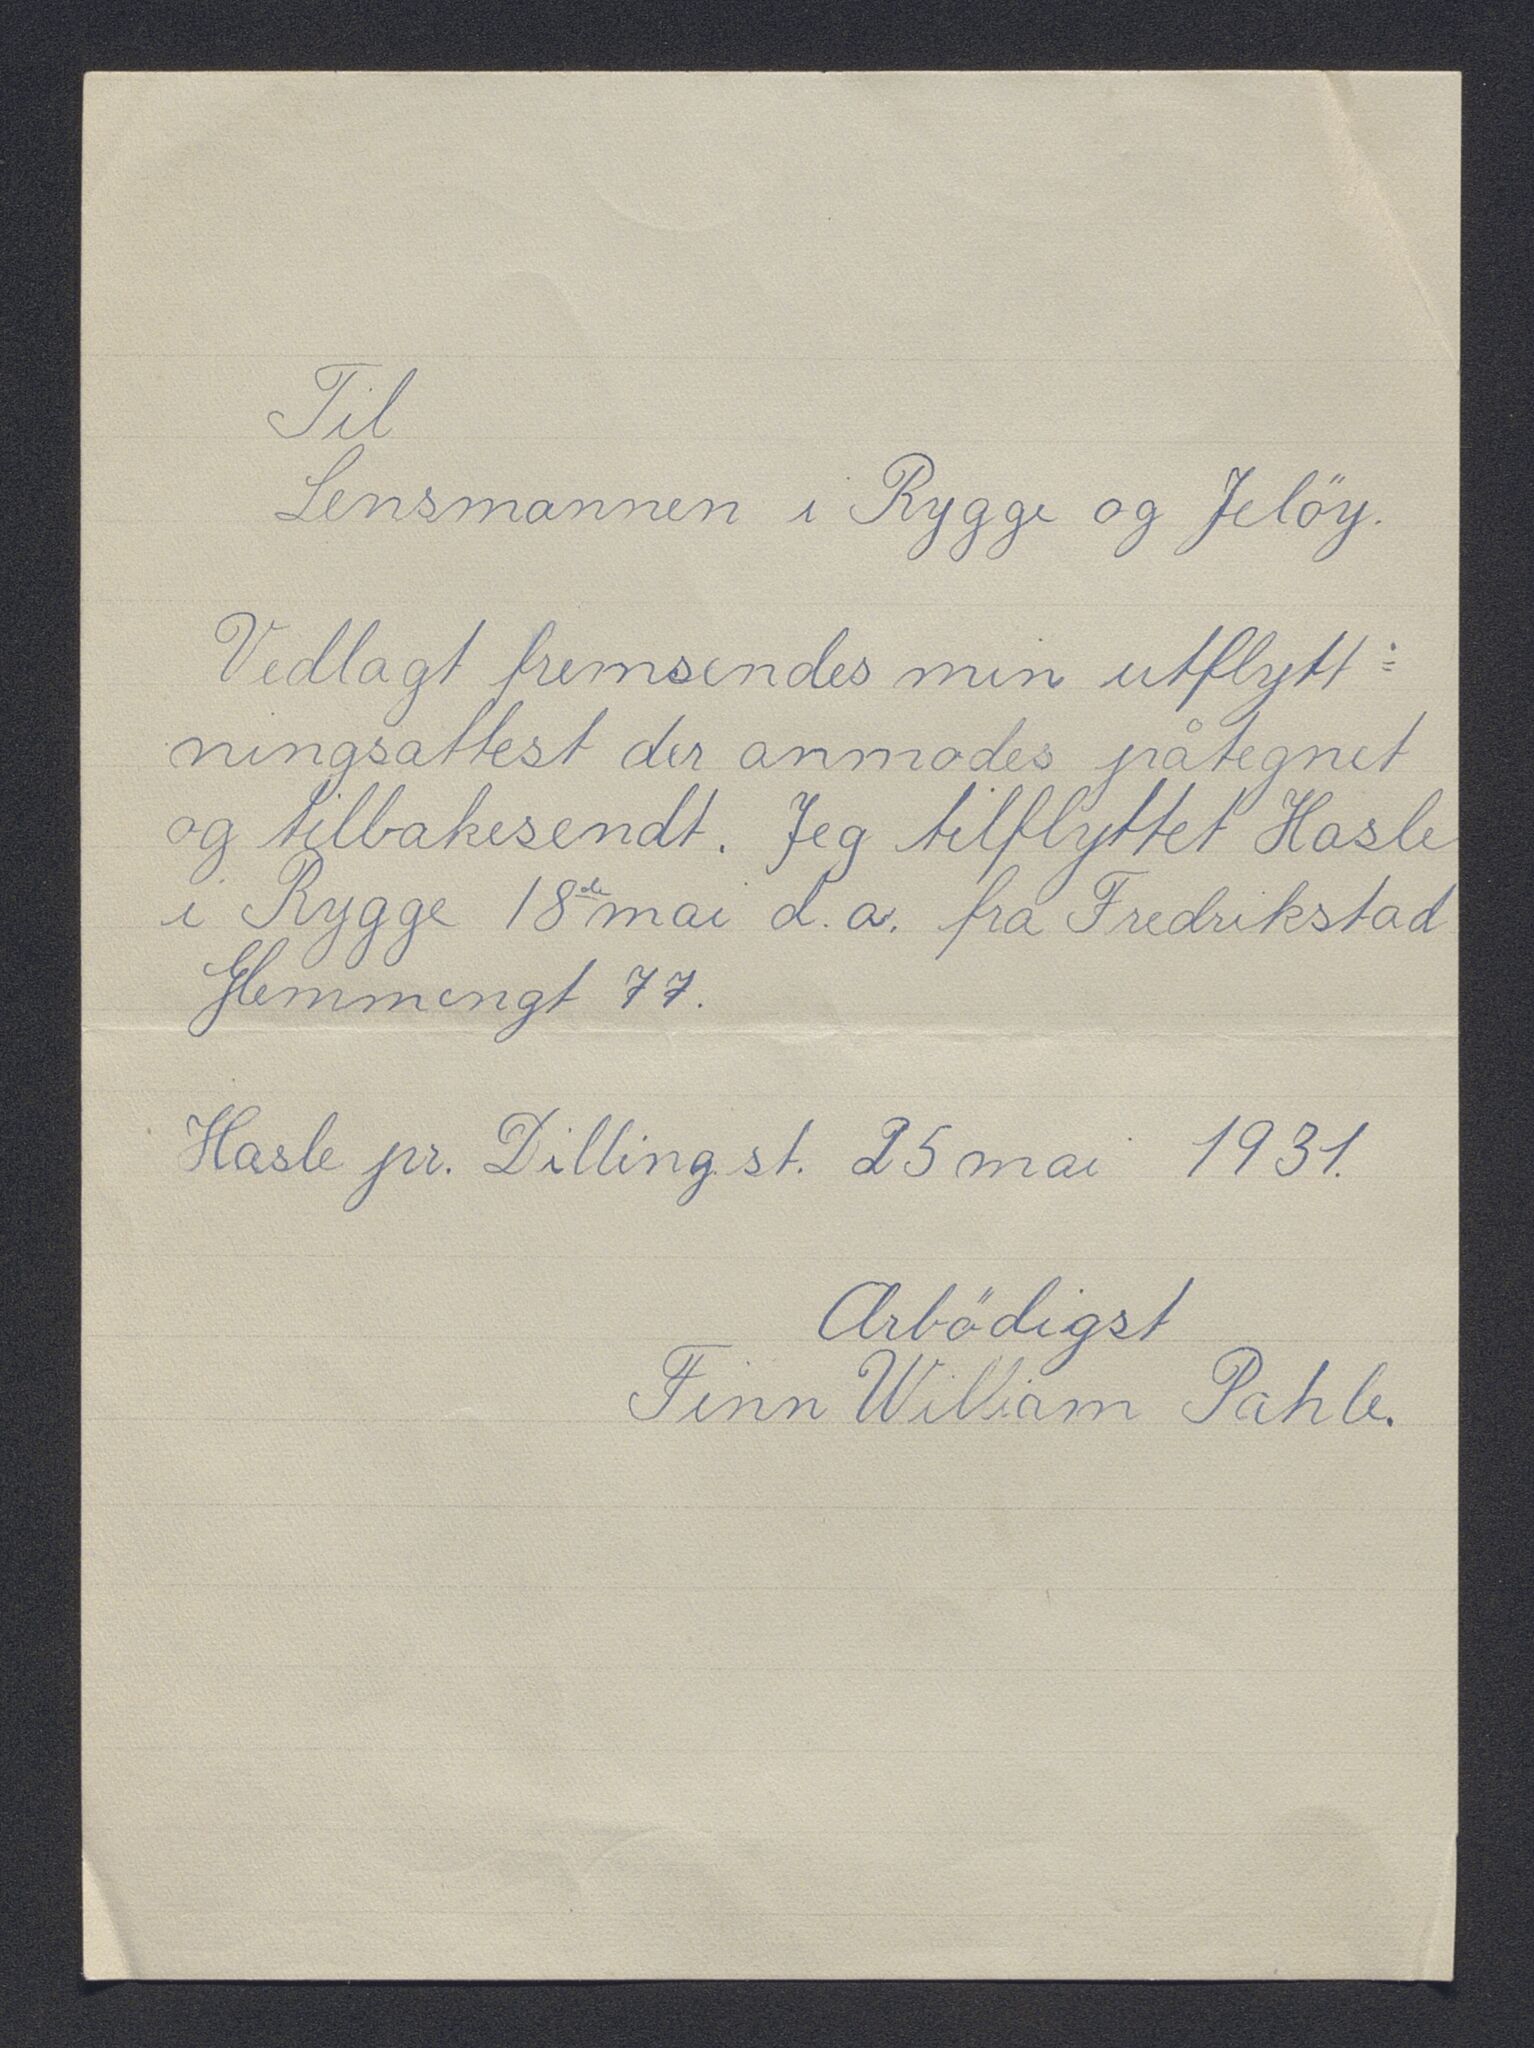 Til
Lensmannen i Rygge og Jelöy.
Vedlagt fremsendes min utflytt÷
ningsattest der anmodes påtegnet
og tilbakesendt. Jeg tilflyttet Hasle
i Rygge 18de mai d. a. fra Fredrikstad
Glemmengt 77.
Hasle pr. Dilling st. 25 mai 1931.
Ærbödigst
Finn William Pahle.